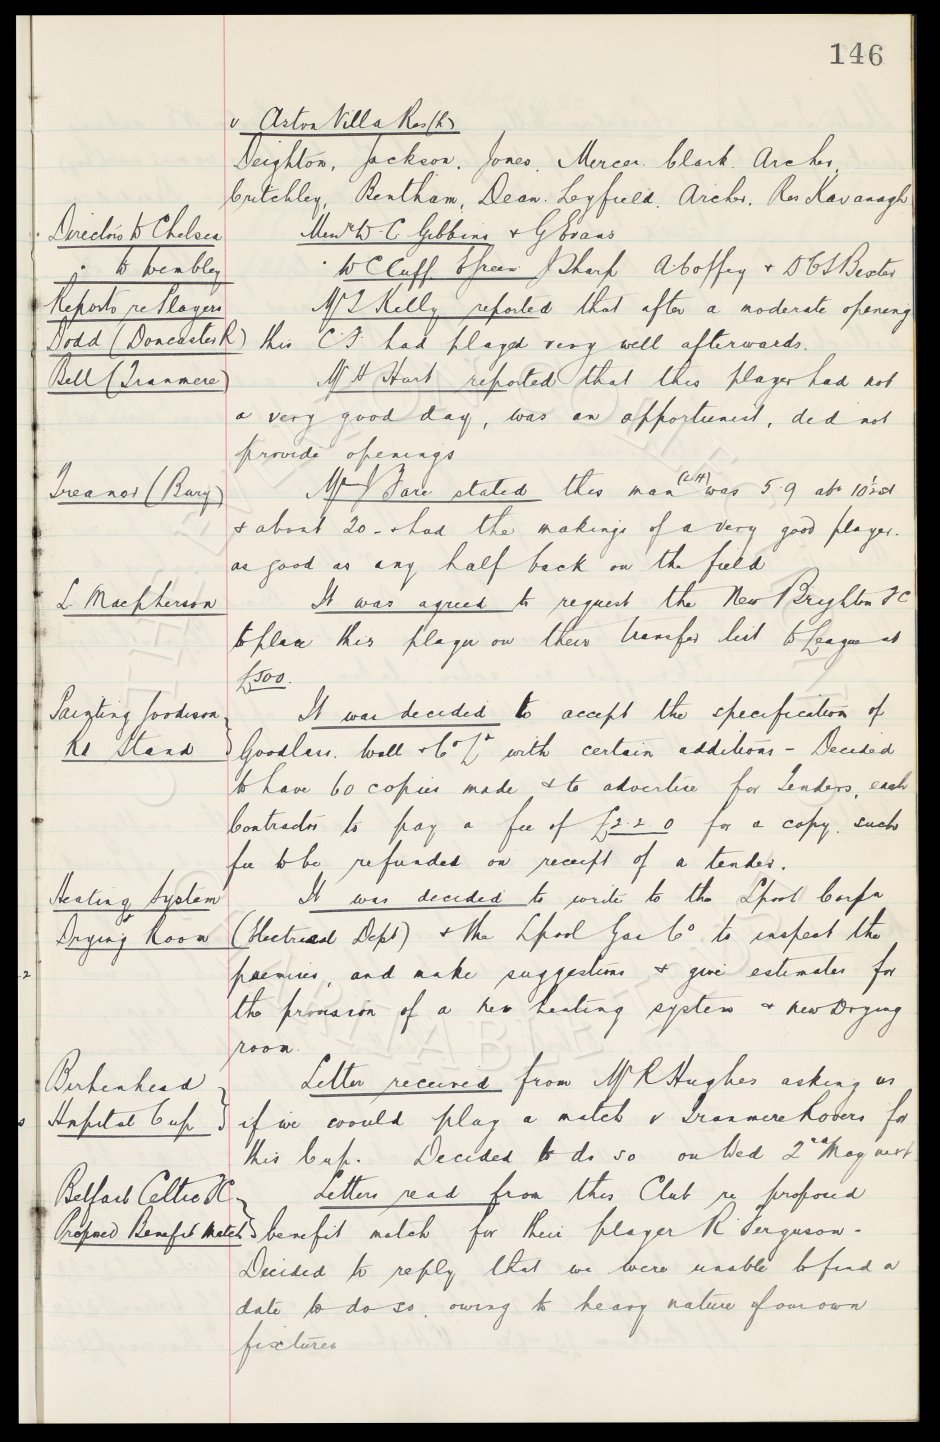 146
v Aston Villa Res (h)
Deighton, Jackson, Jones, Mercer. Clark. Archer,
Critchley, Bentham, Dean. Leyfield. Archer. Res Kavanagh
Directors to Chelsea Messrs W. C. Gibbins & G Evans
" to Wembley " W C Cuff T Green J Sharp A Coffey & D C S Baxter
Reports re Players Mr T Kelly reported that after a moderate opening
Dodd (Doncaster R) this C.F. had played very well afterwards.
Bell (Tranmere) Mr H Hart reported that this player had not
a very good day, was an opportunist, did not
provide openings
Treanor (Bury) Mr J Fare stated this man (L.H) was 5.9 abt 10½ st
& about 20 - & had the makings of a very good player.
as good as any half back on the field
L. Macpherson It was agreed to request the New Brighton FC
to place this player on their transfer list to League at
£500.
Painting Goodison It was decided to accept the specification of
Rd Stand Goodlass. Wall & Co Ld with certain additions - Decided
to have 60 copies made & to advertise for Tenders, each
Contractor to pay a fee of £2. 2. 0 for a copy. such
fee to be refunded on receipt of a tender.
Heating System It was decided to write to the Lpool Corpn
& Drying Room (Electrical Dept) & the Lpool Gas Co to inspect the
premises, and make suggestions & give estimates for
the provision of a new heating system & new Drying
room.
Birkenhead Letter received from Mr R Hughes asking us
Hospital Cup if we would play a match v Tranmere Rovers for
this Cup. Decided to do so on Wed 2nd May next
Belfast Celtic FC Letters read from this Club re proposed
Proposed Benefit Match benefit match for their player R Ferguson -
Decided to reply that we were unable to find a
date to do so, owing to heavy nature of our own
fixtures